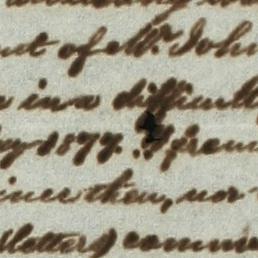 nt of Mr. John
in a difficult
1877. I from
ince then, nor
(letters) commu